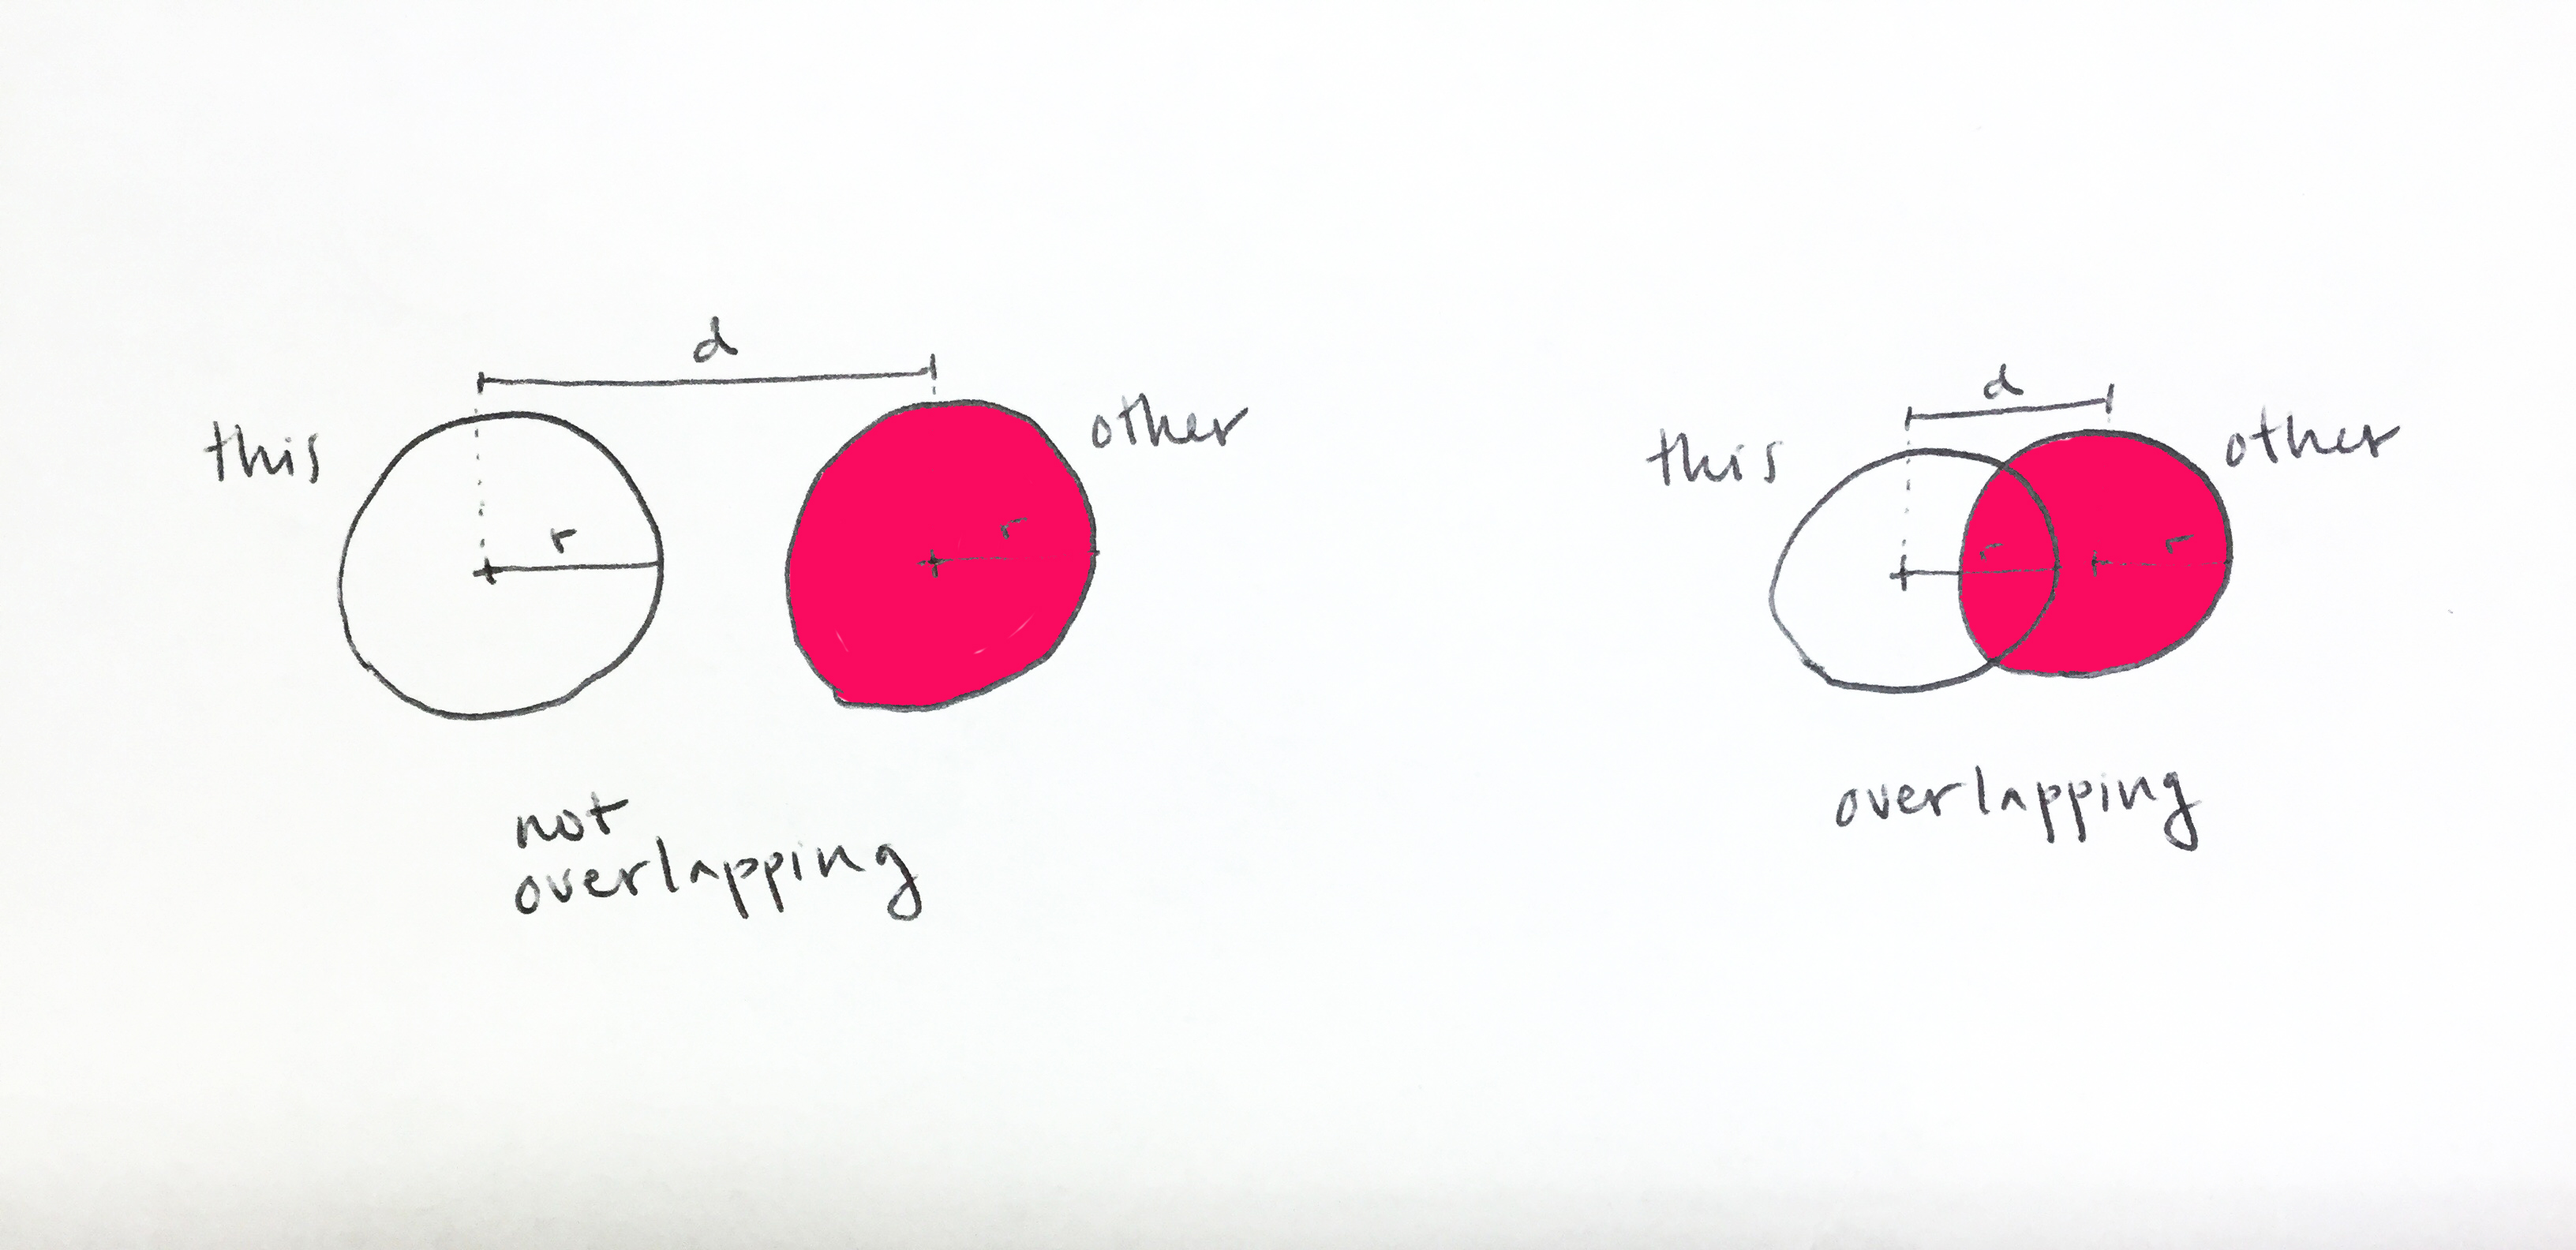 d
this
other
r
r
not
overlapping
d
this
other
r
r
overlapping